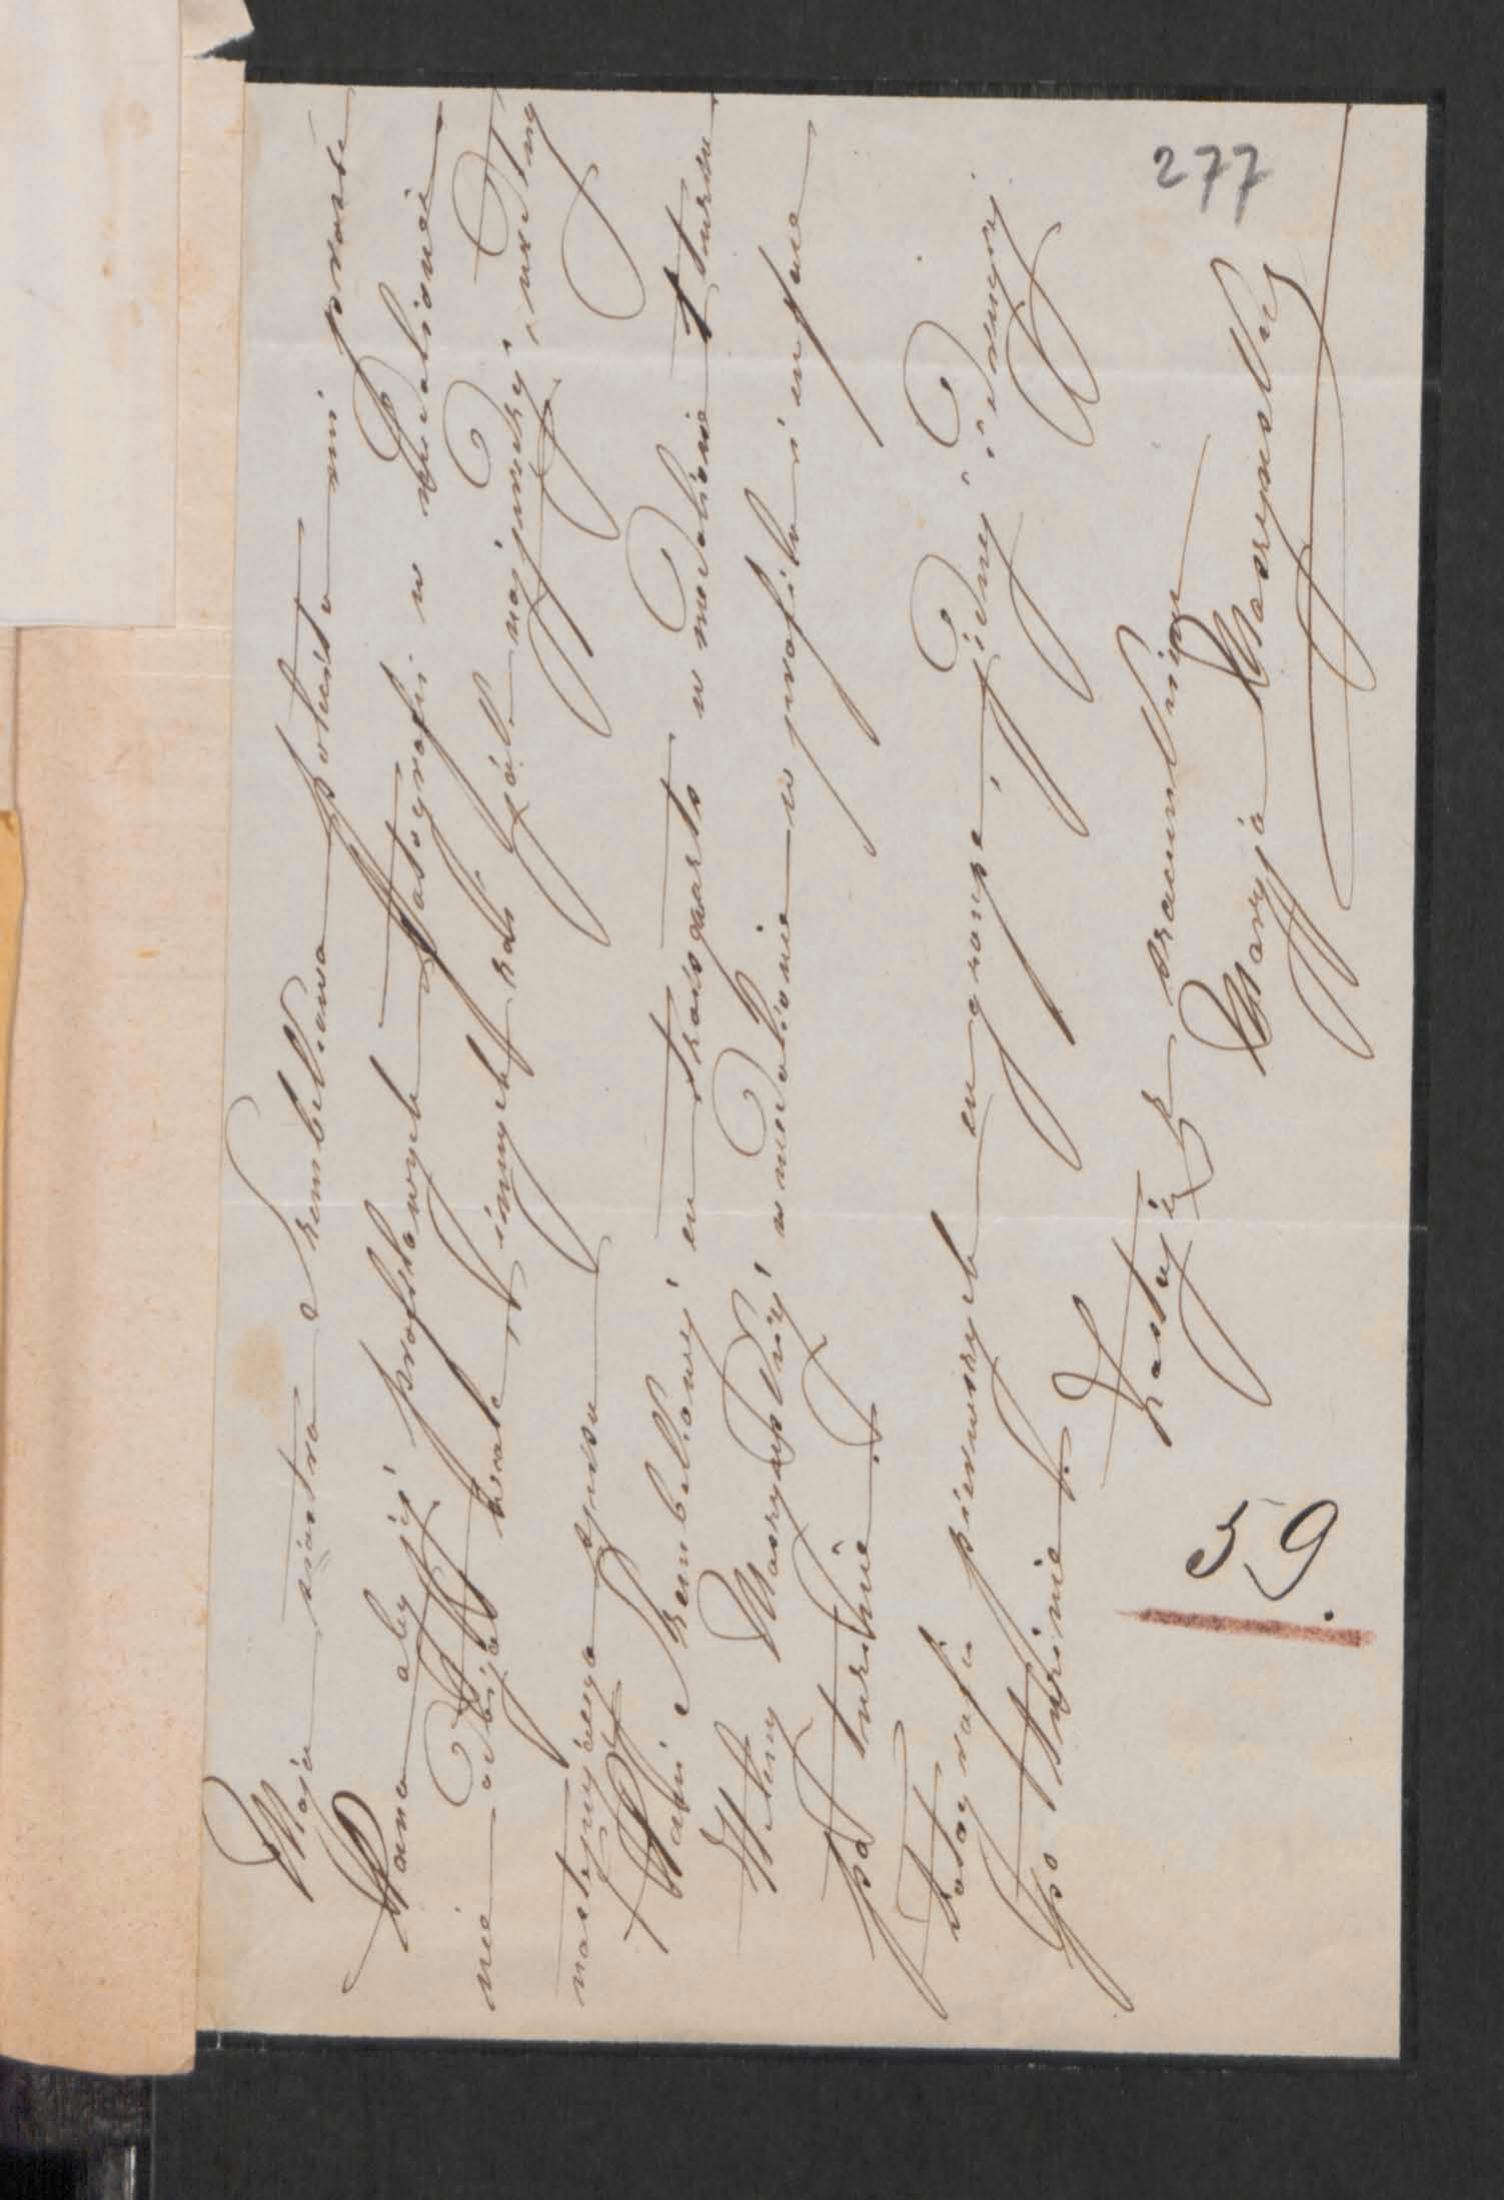 Moja siostra Szembekowa poleciła mi prosić
Pana aby jéj pozostawych fotografii w medalionie
nie odbijał wcale, z innych zaś jak najprędzej, podług
następującego spisu
Pani Szembekowéj en trois quarts w medalionie 1 tuzin
Heleny Moszyńskiéj w medalionie w profilu i en face
po tuzinie.
fotografii pierwszych en groupe jednéj i drugiéj
po tuzinie.
Zostaję z szacunkiem
Maryja Moszyńska
59.
277